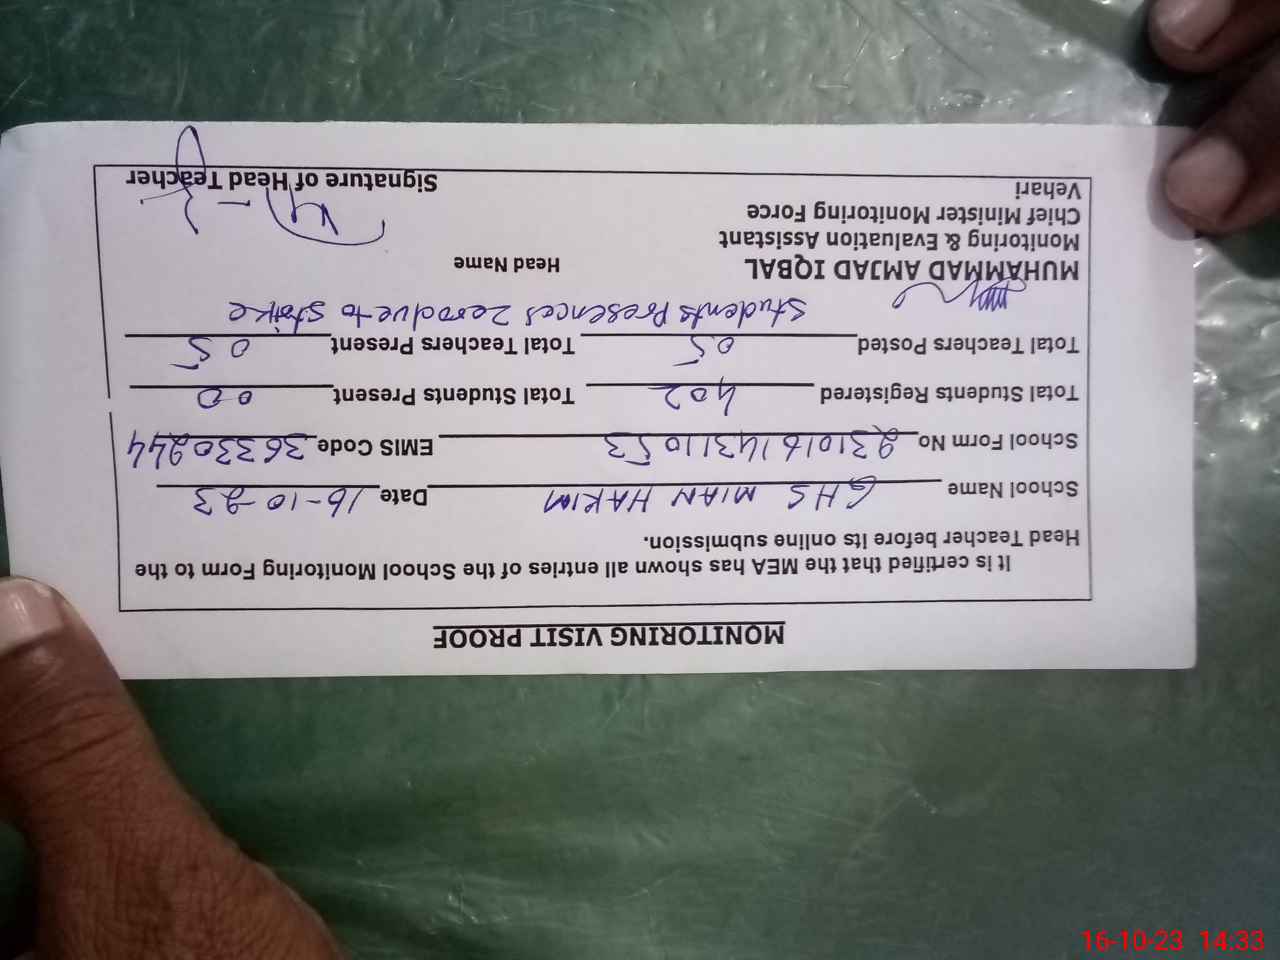 MONITORING VISIT PROOF
It is certified that the MEA has shown all entries of the School Monitoring Form to the
Head Teacher before its online submission.
School Name GHS MIAN HAKIM Date 16-10-23
School Form No 23101614311053 EMIS Code 36330244
Total Students Registered 402 Total Students Present 00
Total Teachers Posted 05 Total Teachers Present 05
Students Presences Zero due to strike
MUHAMMAD AMJAD IQBAL Head Name
Monitoring & Evaluation Assistant
Chief Minister Monitoring Force
Vehari Signature of Head Teacher
16-10-23 14:33